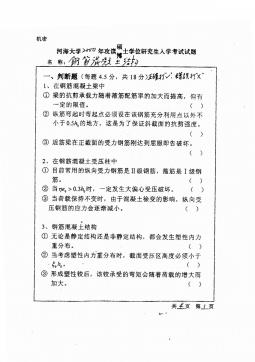 机密
河海大学2000年攻读硕士学位研究生入学考试试题
名称:钢筋混凝土结构
一、判断题(每题4.5分,共18分)
1、在钢筋混凝土梁中
① 梁的抗剪承载力随着箍筋配筋率的加大而提高,但有
一定的限值。 ( )
② 纵筋弯起时弯起点必须设在该钢筋充分利用点以外不
小于0.5h₀的地方,这是为了保证斜截面的抗剪强度。
( )
③ 适筋梁在正截面的受力钢筋刚达到屈服即告破坏。
( )
2、在钢筋混凝土受压柱中
① 目前常用的纵向受力钢筋是Ⅱ级钢筋,箍筋是Ⅰ级钢
筋。 ( )
② 当ηe₀>0.3h₀时,一定发生大偏心受压破坏。 ( )
③ 当荷载保持不变时,由于混凝土徐变的影响,纵向受
压钢筋的应力会逐渐减小。 ( )
3、钢筋混凝土结构
① 无论是静定结构还是非静定结构,都会发生塑性内力
重分布。 ( )
② 当考虑塑性内力重分布时,截面受压区高度必须小于
ξ_b h₀。 ( )
③ 形成塑性铰后,该铰承受的弯矩会随着荷载的增大而
加大。 ( )
共 页 第1页